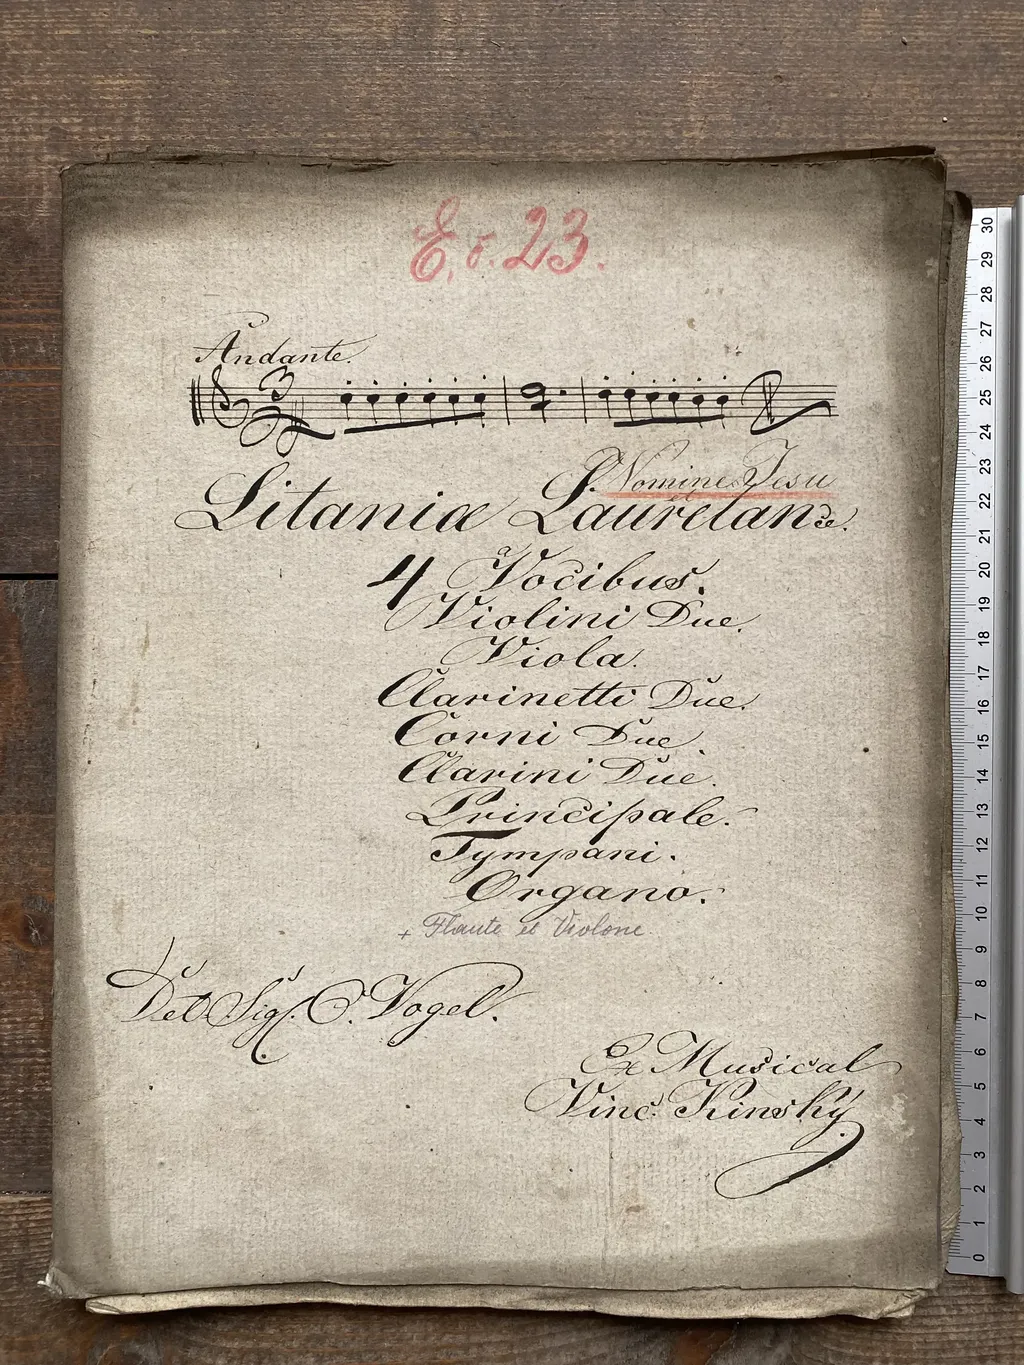 E. č. 23.
Andante.
3
S. Nomine Jesu
Litaniæ Lauretanæ.
a
4 Vocibus.
Violini Due.
Viola.
Clarinetti Due.
Corni Due.
Clarini Due.
Principale.
Tympani.
Organo.
+ Flaute et Violone.
Del Sig. C. Vogel.
Ex Musical
Vinc. Kinský
30
29
28
27
26
25
24
23
22
21
20
19
18
17
16
15
14
13
12
11
10
9
8
7
6
5
4
3
2
1
0